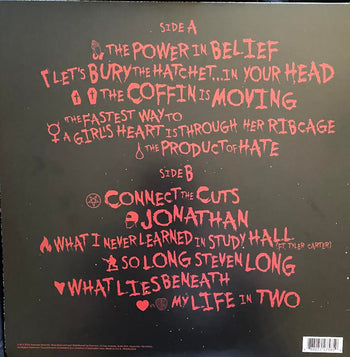 SIDE A
THE POWER IN BELIEF
LET'S BURY THE HATCHET...IN YOUR HEAD
THE COFFIN IS MOVING
THE FASTEST WAY TO
A GIRL'S HEART IS THROUGH HER RIBCAGE
THE PRODUCT OF HATE
SIDE B
CONNECT THE CUTS
JONATHAN
WHAT I NEVER LEARNED IN STUDY HALL (FT. TYLER CARTER)
SO LONG STEVEN LONG
WHAT LIES BENEATH
MY LIFE IN TWO